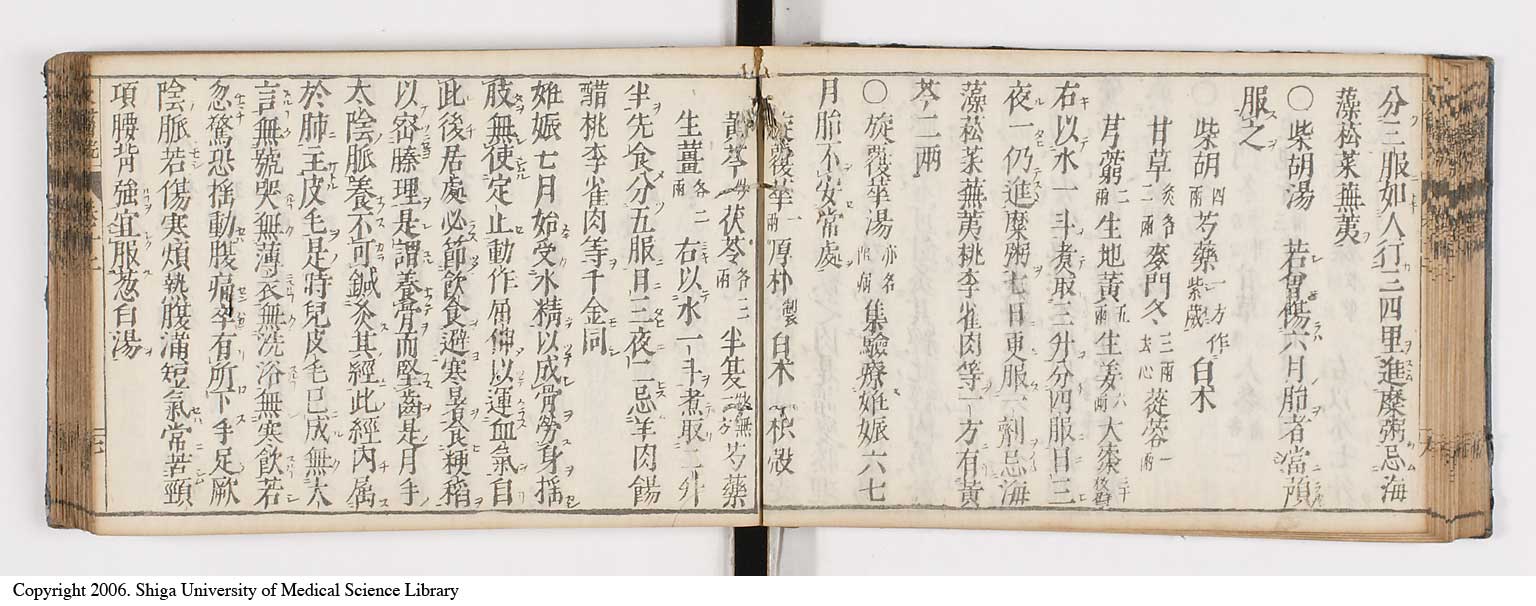 分三服如人行三四里進糜粥忌海
藻菘菜蕪荑
○柴胡湯 若曾傷六月胎者當預
服之
柴胡四兩 芍藥一方作紫葳 白朮
甘草炙各二兩 麥門冬三兩去心 蓯蓉一兩
芎藭二兩 生地黃五兩 生姜六兩 大棗三十枚
右以水一斗煮取三升分四服日三
夜一仍進糜粥七日更服一劑忌海
藻菘菜蕪荑桃李雀肉等一方有黃
芩二兩
○旋覆華湯 集驗療姙娠六七
月胎不安常處
旋覆華一兩 厚朴製 白朮 枳殼
黃芩 茯苓各三兩 半夏 芍藥
生薑各二兩 右以水一斗煮取二升
半先食分五服日三夜二忌羊肉餳
醋桃李雀肉等千金同
姙娠七月始受木精以成骨勞身搖
肢無使定止動作屈伸以運血氣自
此後居處必節飲食避寒暑食粳稻
以密腠理是謂養骨而堅齒是月手
太陰脈養不可鍼灸其經此經內属
於肺主皮毛是時兒皮毛已成無太
言無號哭無薄衣無洗浴無寒飲若
忽驚恐搖動腹痛卒有所下手足厥
陰脈若傷寒煩熱腹滿短氣常苦頸
項腰背強宜服葱白湯
Copyright 2006. Shiga University of Medical Science Library